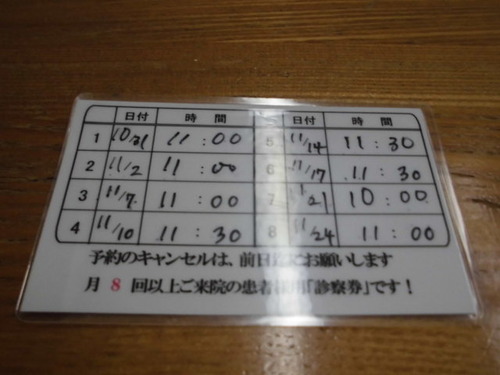 日付 時間 日付 時間
1 10/31 11:00 5 11/14 11:30
2 11/2 11:00 6 11/17 11:30
3 11/7 11:00 7 11/21 10:00
4 11/10 11:30 8 11/24 11:00
予約のキャンセルは、前日迄にお願いします
月 8 回以上ご来院の患者様用「診察券」です!